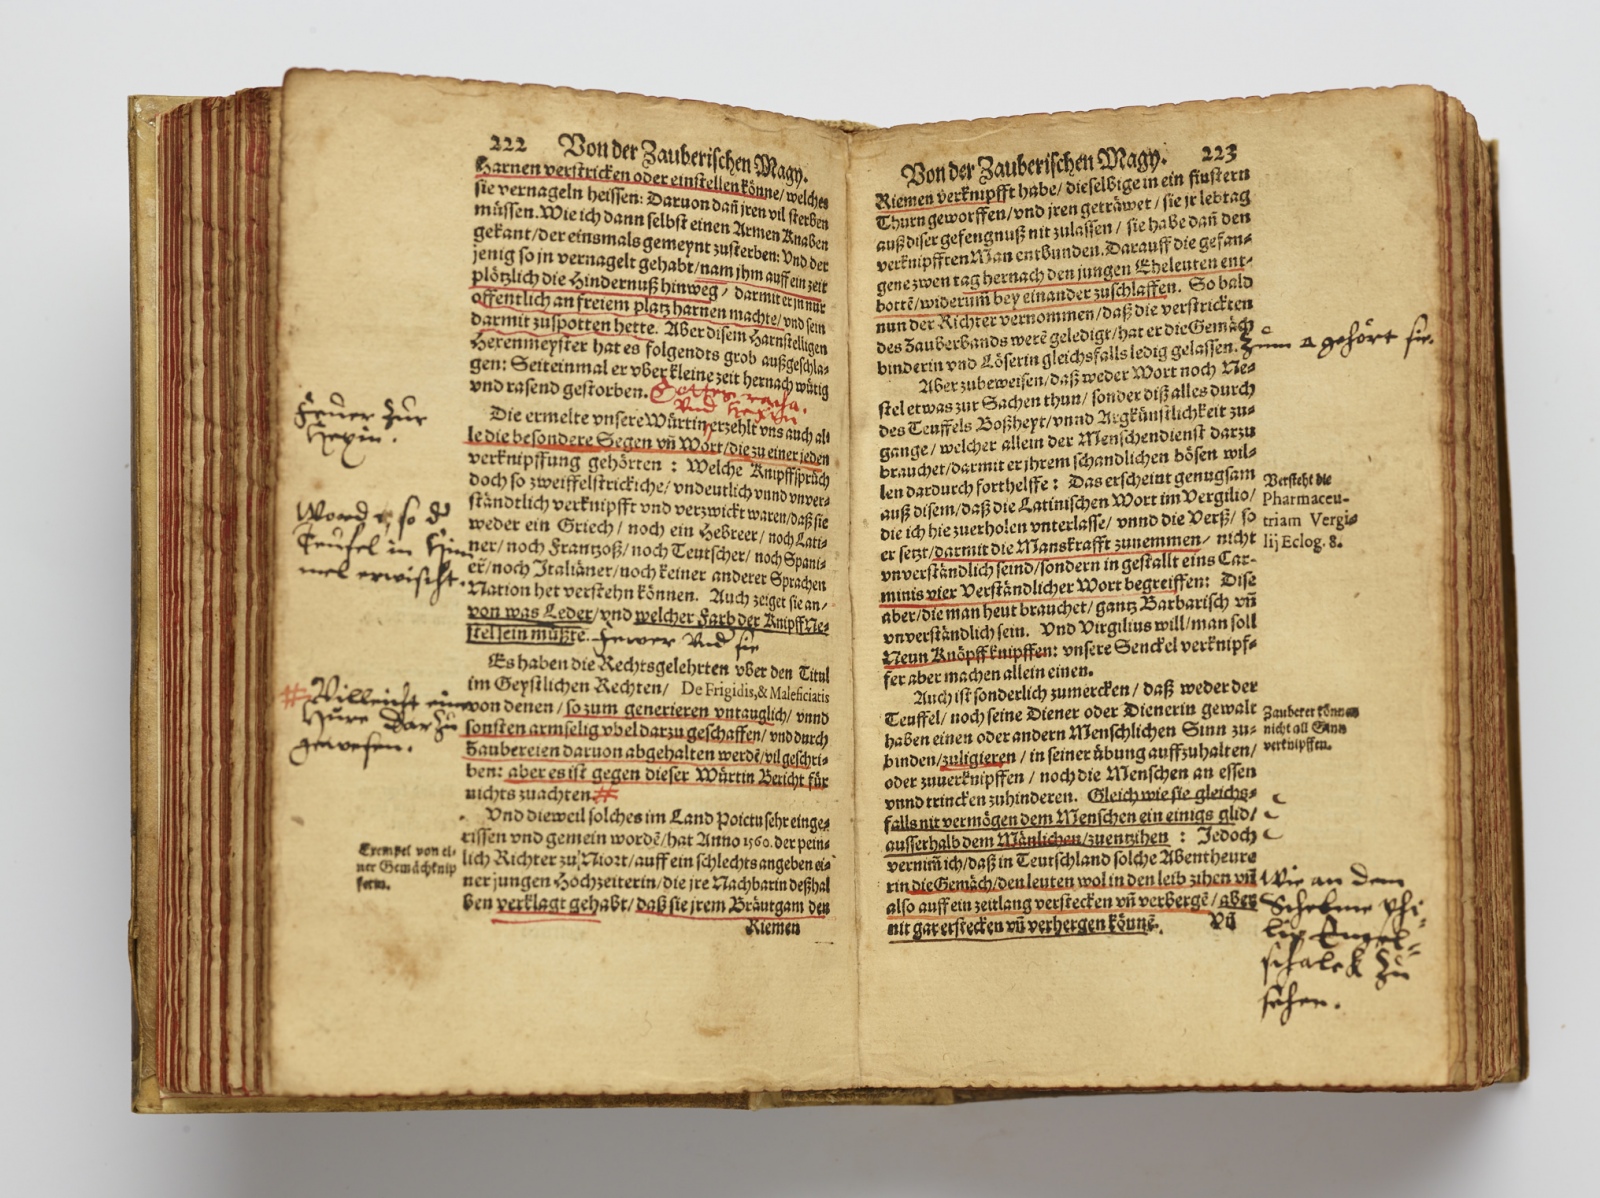 222 Von der Zauberischen Magy.
Harnen verstricken oder einstellen könne/welches
sie vernageln heissen: Daruon dañ jren vil sterben
müssen. Wie ich dann selbst einen Armen Knaben
gekant/der einsmals gemeynt zusterben: Vnd der
jenig so in vernagelt gehabt/nam jhm auff ein zeit
plötzlich die Hindernuß hinweg/ darmit er jn nur
offentlich an freiem platz harnen machte/vnd sein
darmit zuspotten hette. Aber disem Harnstelligen
Hexenmeyster hat es folgendts grob außgeschla-
gen: Seiteinmal er vber kleine zeit hernach wütig
vnd rasend gestorben. Gottes rach.
Vnd
Feuer Zur
Hexin.
Die ermelte vnsere Würtin erzehlt vns auch al-
le die besondere Segen vñ Wort/die zu einer jeden
verknipffung gehörten : Welche Knipffsprüch
doch so zweiffelstrickiche/vndeutlich vnnd vnver-
ständtlich verknipfft vnd verzwickt waren/daß sie
weder ein Griech/ noch ein Hebreer/ noch Lati-
ner/noch Frantzoß/noch Teutscher/noch Spani-
er/noch Italiäner/noch keiner anderer Sprachen
Nation het verstehn können. Auch zeiget sie an/
von was Leder/vnd welcher Farb der KnipffNe-
stel sein müßte. Fewer Vnd sie
Word so d
Teufel in Him
mel erwischt.
Es haben die Rechtsgelehrten vber den Titul
im Geystlichen Rechten/ De Frigidis, & Maleficiatis
von denen/so zum generieren vntauglich/ vnnd
sonsten armselig vbel darzu geschaffen/vnd durch
Zaubereien daruon abgehalten werdẽ/vil geschri-
ben: aber es ist gegen dieser Würtin Bericht für
nichts zuachten. #
# Villeicht eine
Hure Dar Zu
gewesen.
Vnd dieweil solches im Land Poictu sehr einge-
rissen vnd gemein wordẽ/hat Anno 1560. der pein-
lich Richter zu Niort/auff ein schlechts angeben ei-
ner jungen Hochzeiterin/die jre Nachbarin deßhal
ben verklagt gehabt/daß sie jrem Bräutgam den
Riemen
Exempel von ei-
ner Gemächknip
ferin.
Von der Zauberischen Magy. 223
Riemen verknipfft habe/dieselbige in ein finstern
Thurn geworffen/vnd jren geträwet/sie jr lebtag
auß diser gefengnuß nit zulassen/ sie habe dañ den
verknipfften Man entbunden. Darauff die gefan-
gene zwen tag hernach den jungen Eheleuten ent-
bottẽ/widerum̃ bey einander zuschlaffen. So bald
nun der Richter vernommen/daß die verstrickten
des Zauberbands werẽ geledigt/hat er die Gemäch
binderin vnd Löserin gleichsfalls ledig gelassen.
Zum gehört sie.
Aber zubeweisen/daß weder Wort noch Ne-
stel etwas zur Sachen thun/ sonder diß alles durch
des Teuffels Boßheyt/vnnd Argkäustlichkeit zu-
gange/ welcher allein der Menschendienst darzu
brauchet/darmit er jhrem schandlichen bösen wil-
len dardurch forthelffe: Das erscheint genugsam
auß disem/daß die Latinischen Wort im Vergilio/
die ich hie zuerholen vnterlasse/vnnd die Verß/so
er setzt/darmit die Manskrafft zunemmen/ nicht
vnverständlich seind/sondern in gestallt eins Car-
minis vier Verständlicher Wort begreiffen: Dise
aber/die man heut brauchet/gantz Barbarisch vñ
vnverständlich sein. Vnd Virgilius will/man soll
Neun Knöpff knipffen: vnsere Senckel verknipf-
fer aber machen allein einen.
Versteht die
Pharmaceu-
triam Vergi-
lij Eclog. 8.
Auch ist sonderlich zumercken/ daß weder der
Teuffel/noch seine Diener oder Dienerin gewalt
haben einen oder andern Menschlichen Sinn zu-
binden/zuligieren/in seiner übung auffzuhalten/
oder zuuerknipffen/noch die Menschen an essen
vnnd trincken zuhinderen. Gleich wie sie gleichs-
falls nit vermögen dem Menschen ein einigs glid/
ausserhalb dem Mänlichen/zuentzihen : Jedoch
vernim̃ ich/daß in Teutschland solche Abentheure
rin die Gemäch/den leuten wol in den leib zihen vñ
also auff ein zeitlang verstecken vñ verbergẽ/aber
nit gar erstecken vñ verhergen könnẽ. Vñ
Zauberer können
nicht all Sinn
verknipffen.
Wie an dem
Schelme Phi-
lip Engel-
schalck Zu
sehen.